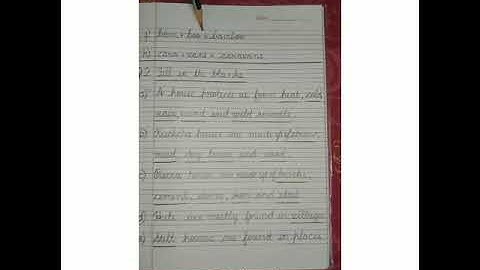 g) bam + boo = bamboo
h) cara + vans = caravans
Q2 Fill in the blanks
a) A house protects us from heat, cold
rain, wind and wild animals.
b) Kachcha houses are made up of straw,
mud, dry leaves and wood.
c) Pucca houses are made up of bricks,
cement, stones, iron and steel
d) Huts are mostly found in villages
e) Stilt houses are found in places